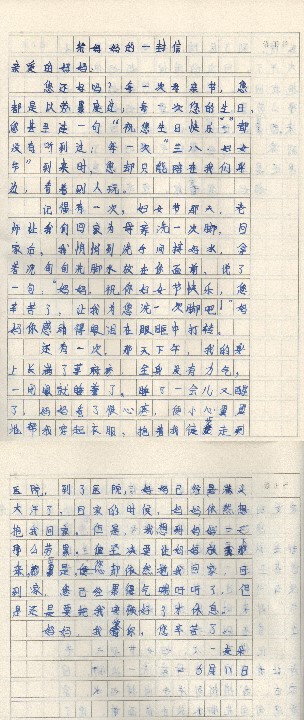 给妈妈的一封信
亲爱的妈妈:
您还好吗?每一次母亲节,您
都是以劳累度过,每一次您的生日,
您甚至连一句“祝您生日快乐”都
没有听到过,每一次“三八妇女
节”到来时,您却只能陪在我们身
边,看着别人玩。
记得有一次,妇女节那天,老
师让我们回家为母亲洗一次脚。回
家后,我悄悄到洗手间接好水,拿
着洗
脚水放在您面前,说了
一句:“妈妈,祝你妇女节快乐,您
辛苦了,让我为您洗一次脚吧!”妈
妈你感动得眼泪在眼眶中打转。
还有一次,那天下午,我的身
上长满了荨麻疹,全身没有力气,
一回家就睡着了。睡了一会儿又醒
了,妈妈看了很心疼,便小心翼翼
地帮我穿起衣服,抱着我徒步走到
医院。到了医院,妈妈已经是满头
大汗了。回家的时候,妈妈依然想
抱我回家。但是,我想到妈妈
那么劳累,
坚决要让妈妈放
来
是
您却依然抱我回家,回
到家,您已经累得气喘吁吁了,但
是还是要把我安顿好了才休息。
妈妈,我爱你,您辛苦了。